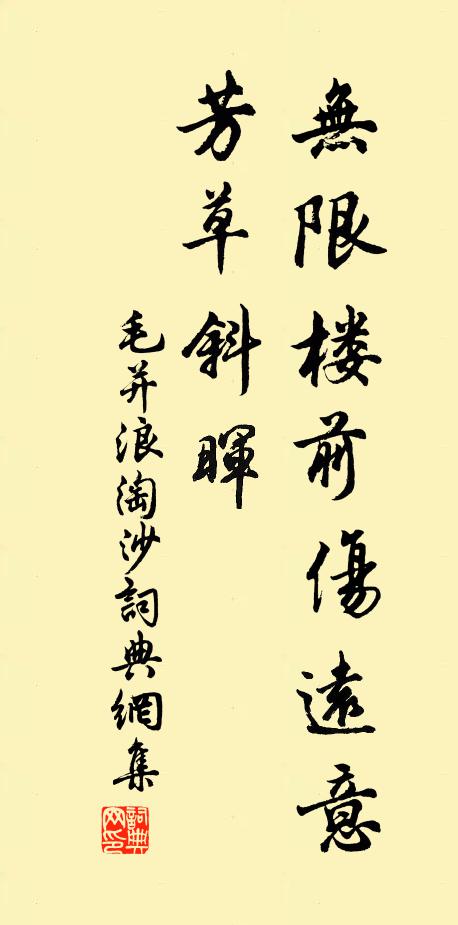 無限楼前傷遠意
芳草斜暉
毛并浪淘沙詞典網集
詞典网印